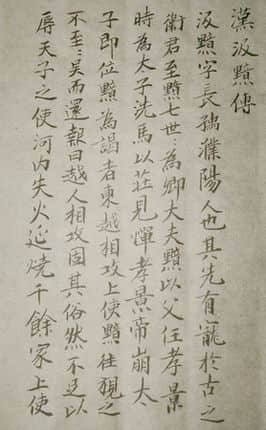 漢汲黯傳
汲黯字長孺濮陽人也其先有寵於古之
衛君至黯七世〻為卿大夫黯以父任孝景
時為太子洗馬以莊見憚孝景帝崩太〻
子即位黯為謁者東越相攻上使黯往視之
不至〻吳而還報曰越人相攻固其俗然不足以
辱天子之使河内失火延燒千餘家上使